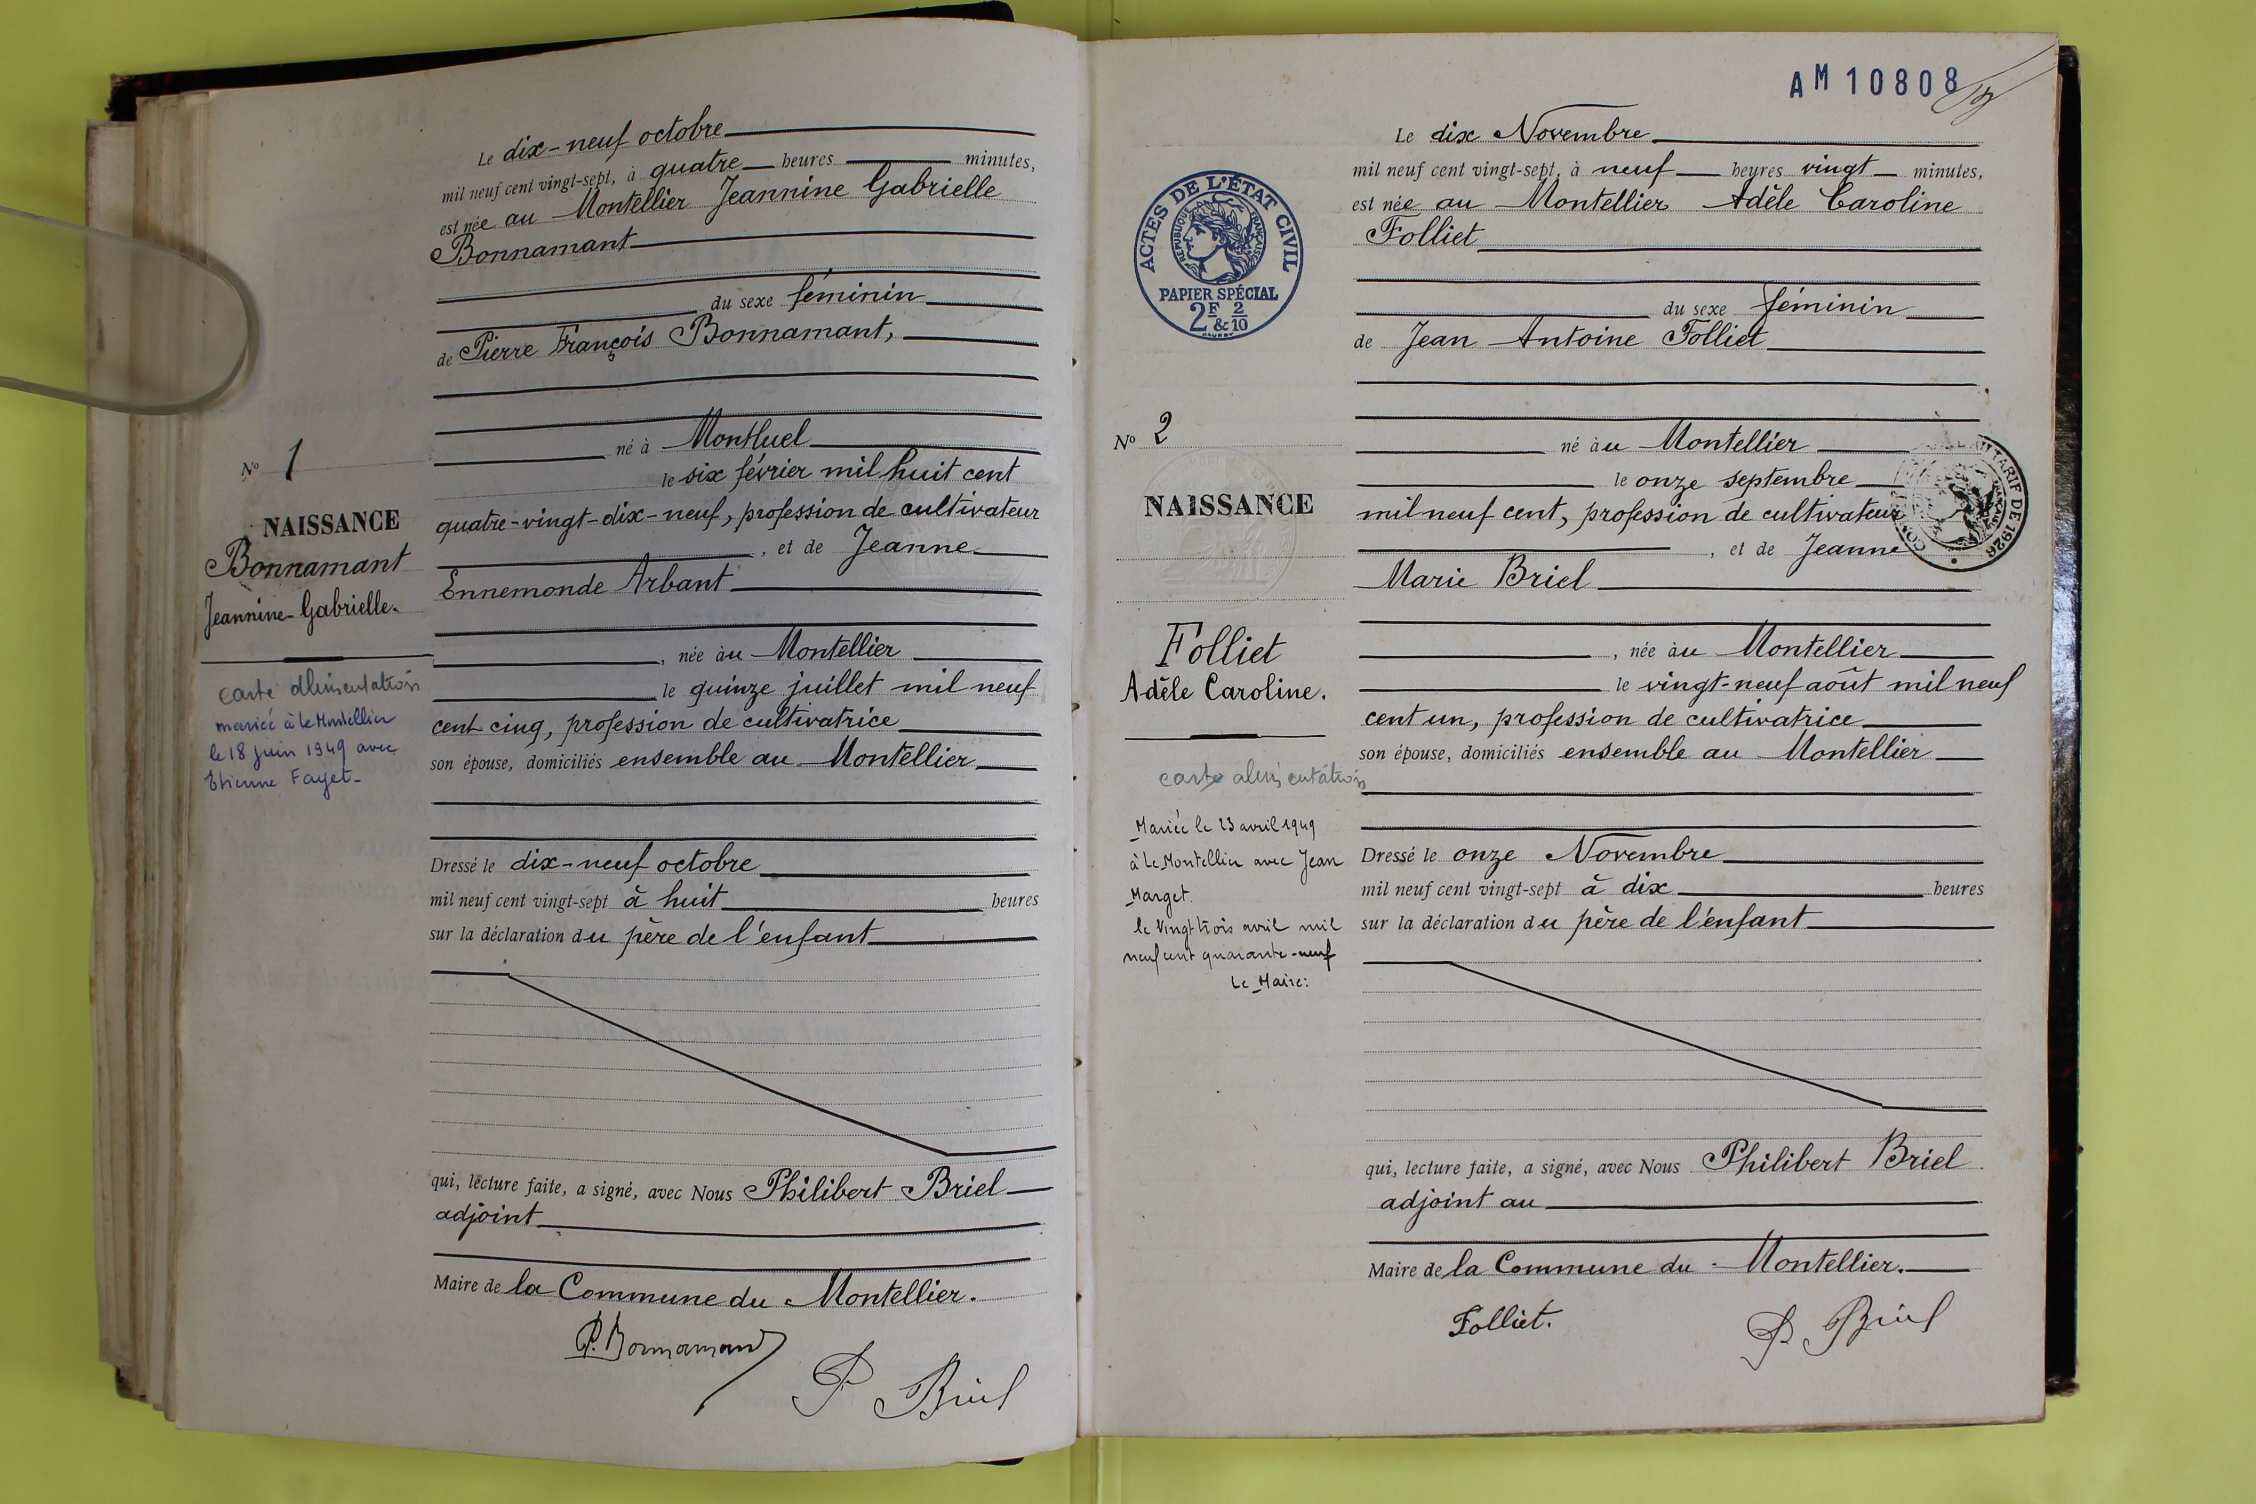 Le dix-neuf octobre
mil neuf cent vingt-sept, à quatre heures minutes,
est née au Montellier Jeannine Gabrielle
Bonnamant
du sexe féminin
de Pierre François Bonnamant,
né à Montluel
le six février mil huit cent
quatre-vingt-dix-neuf, profession de cultivateur
, et de Jeanne
Ennemonde Arbant
, née àu Montellier
le quinze juillet mil neuf
cent cinq, profession de cultivatrice
son épouse, domiciliés ensemble au Montellier
Dressé le dix-neuf octobre
mil neuf cent vingt-sept à huit heures
sur la déclaration du père de l'enfant
qui, lecture faite, a signé, avec Nous Philibert Briel
adjoint
Maire de la Commune du Montellier.
P. Bonnamant
P Briel
No 1
NAISSANCE
Bonnamant
Jeannine-Gabrielle.
carte d'alimentation
mariée à Le Montellier
le 18 juin 1949 avec
Etienne Fayet-
AM 10808
ACTES DE L'ÉTAT CIVIL
RÉPUBLIQUE FRANÇAISE
PAPIER SPÉCIAL
2F 2
& 10
No 2
NAISSANCE
Folliet
Adèle Caroline.
carte alimentation
Mariée le 23 avril 1949
à Le Montellier avec Jean
Marget.
le Vingt trois avril mil
neuf cent quarante-neuf
Le Maire:
Le dix Novembre
mil neuf cent vingt-sept, à neuf heures vingt minutes,
est née au Montellier Adèle Caroline
Folliet
du sexe féminin
de Jean Antoine Folliet
né àu Montellier
le onze septembre
mil neuf cent, profession de cultivateur
, et de Jeanne
Marie Briel
, née àu Montellier
le vingt-neuf août mil neuf
cent un, profession de cultivatrice
son épouse, domiciliés ensemble au Montellier
Dressé le onze Novembre
mil neuf cent vingt-sept à dix heures
sur la déclaration du père de l'enfant
qui, lecture faite, a signé, avec Nous Philibert Briel
adjoint au
Maire de la Commune du Montellier.
Folliet.
P. Briel
TARIF DE 1926